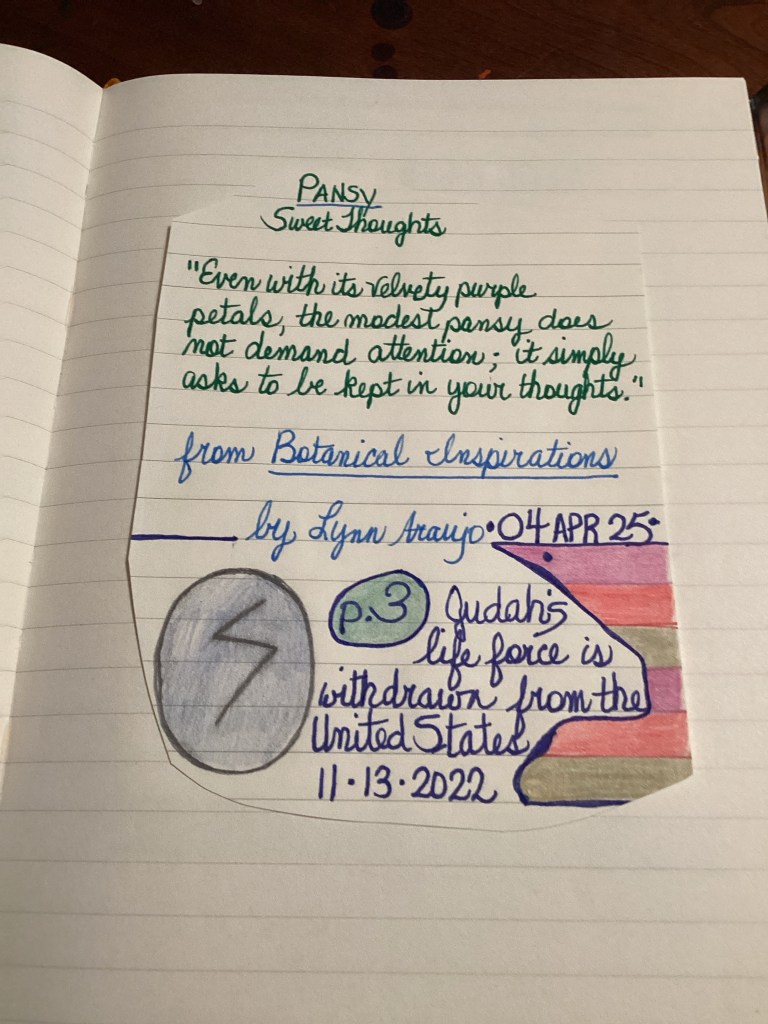 PANSY
Sweet Thoughts
"Even with its velvety purple
petals, the modest pansy does
not demand attention; it simply
asks to be kept in your thoughts."
from Botanical Inspirations
by Lynn Araujo •04 APR 25•
p.3 Judah's
life force is
withdrawn from the
United States
11·13·2022